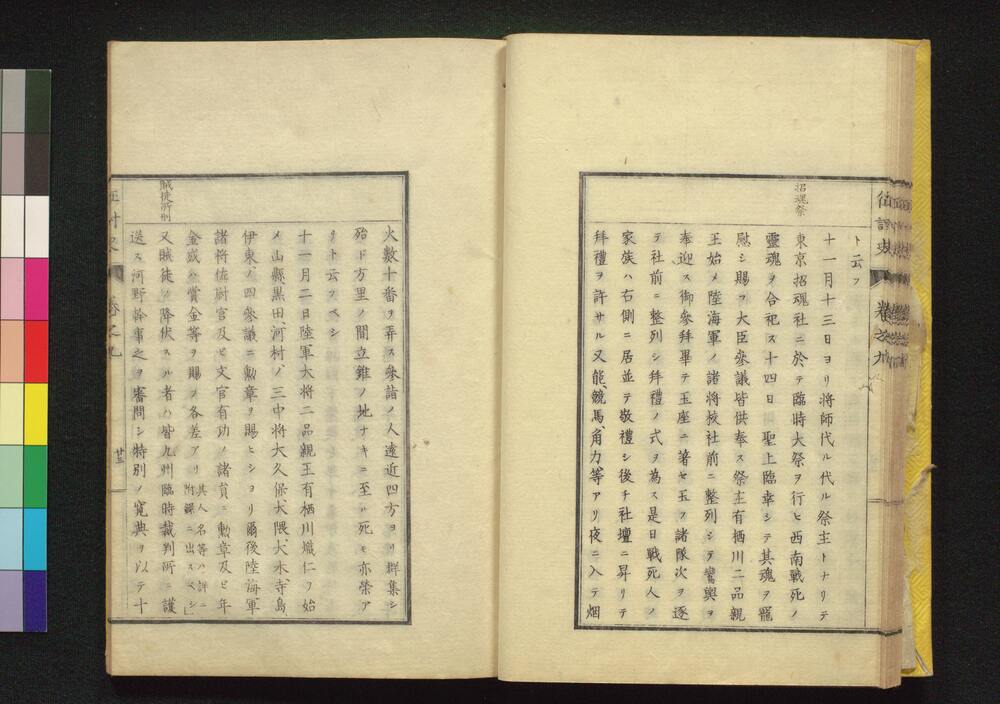 征討史
巻之九
招魂祭
ト云フ
十一月十三日ヨリ将師代ル代ル祭主トナリテ
東京招魂社ニ於テ臨時大祭ヲ行ヒ西南戰死ノ
靈魂ヲ合祀ス十四日　聖上臨幸シテ其魂ヲ寵
慰シ賜フ大臣參議皆供奉ス祭主有栖川二品親
王始メ陸海軍ノ諸将校社前ニ整列シテ鸞輿ヲ
奉迎ス御參拜畢テ玉座ニ著セ玉フ諸隊次ヲ逐
テ社前ニ整列シ拜禮ノ式ヲ為ス是日戰死人ノ
家族ハ右側ニ居並テ敬禮シ後チ社壇ニ昇リテ
拜禮ヲ許サル又能、競馬、角力等アリ夜ニ入テ烟
火數十番ヲ弄ス參詣ノ人遠近四方ヨリ群集シ
殆ド方里ノ間立錐ノ地ナキニ至ル死モ亦榮ア
リト云フベシ
十一月二日陸軍大将二品親王有栖川熾仁ヲ始
メ山縣、黒田、河村ノ三中将大久保、大隈、大木、寺島、
伊東ノ四參議ニ勲章ヲ賜ヒショリ爾後陸海軍
諸将佐尉官及ビ文官有功ノ諸員ニ勲章及ビ年
金或ハ賞金等ヲ賜フ各差アリ
其人名等ハ詳ニ
附錄ニ出スベシ」
賊徒所刑
又賊徒ノ降伏スル者ハ皆九州臨時裁判所ニ護
送ス河野幹事之ヲ審問シ特別ノ寛典ヲ以テ十
巻之九
廿三